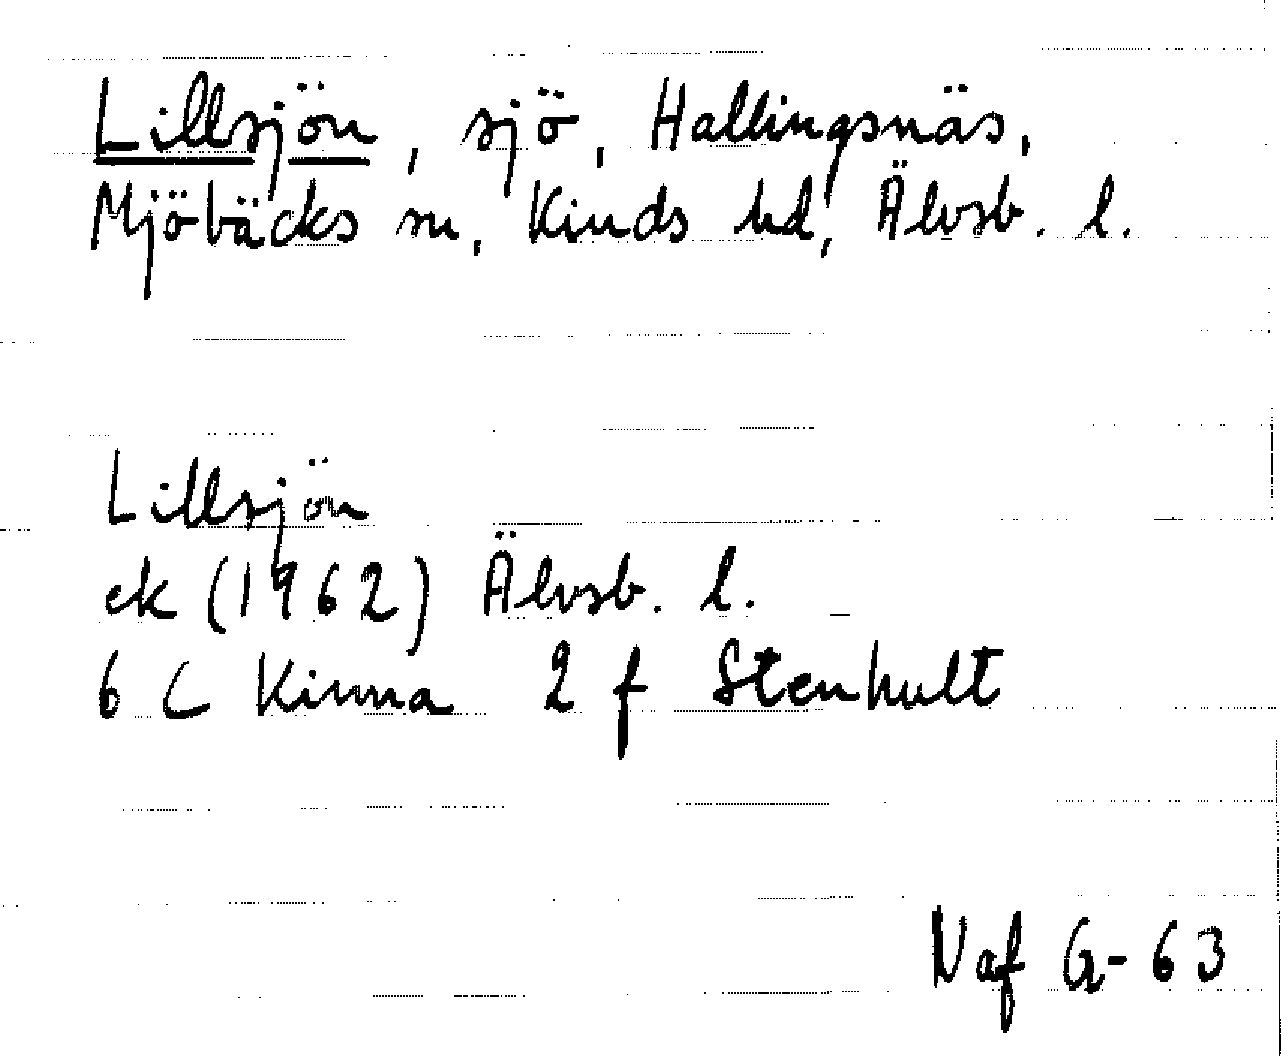 Lillsjön, sjö, Hallingsnäs,
Mjöbäcks sn, Kinds hd, Älvsb. l.
Lillsjön
ek (1962) Älvsb. l.
6 C Kinna 2 f Stenhult
Naf G-63